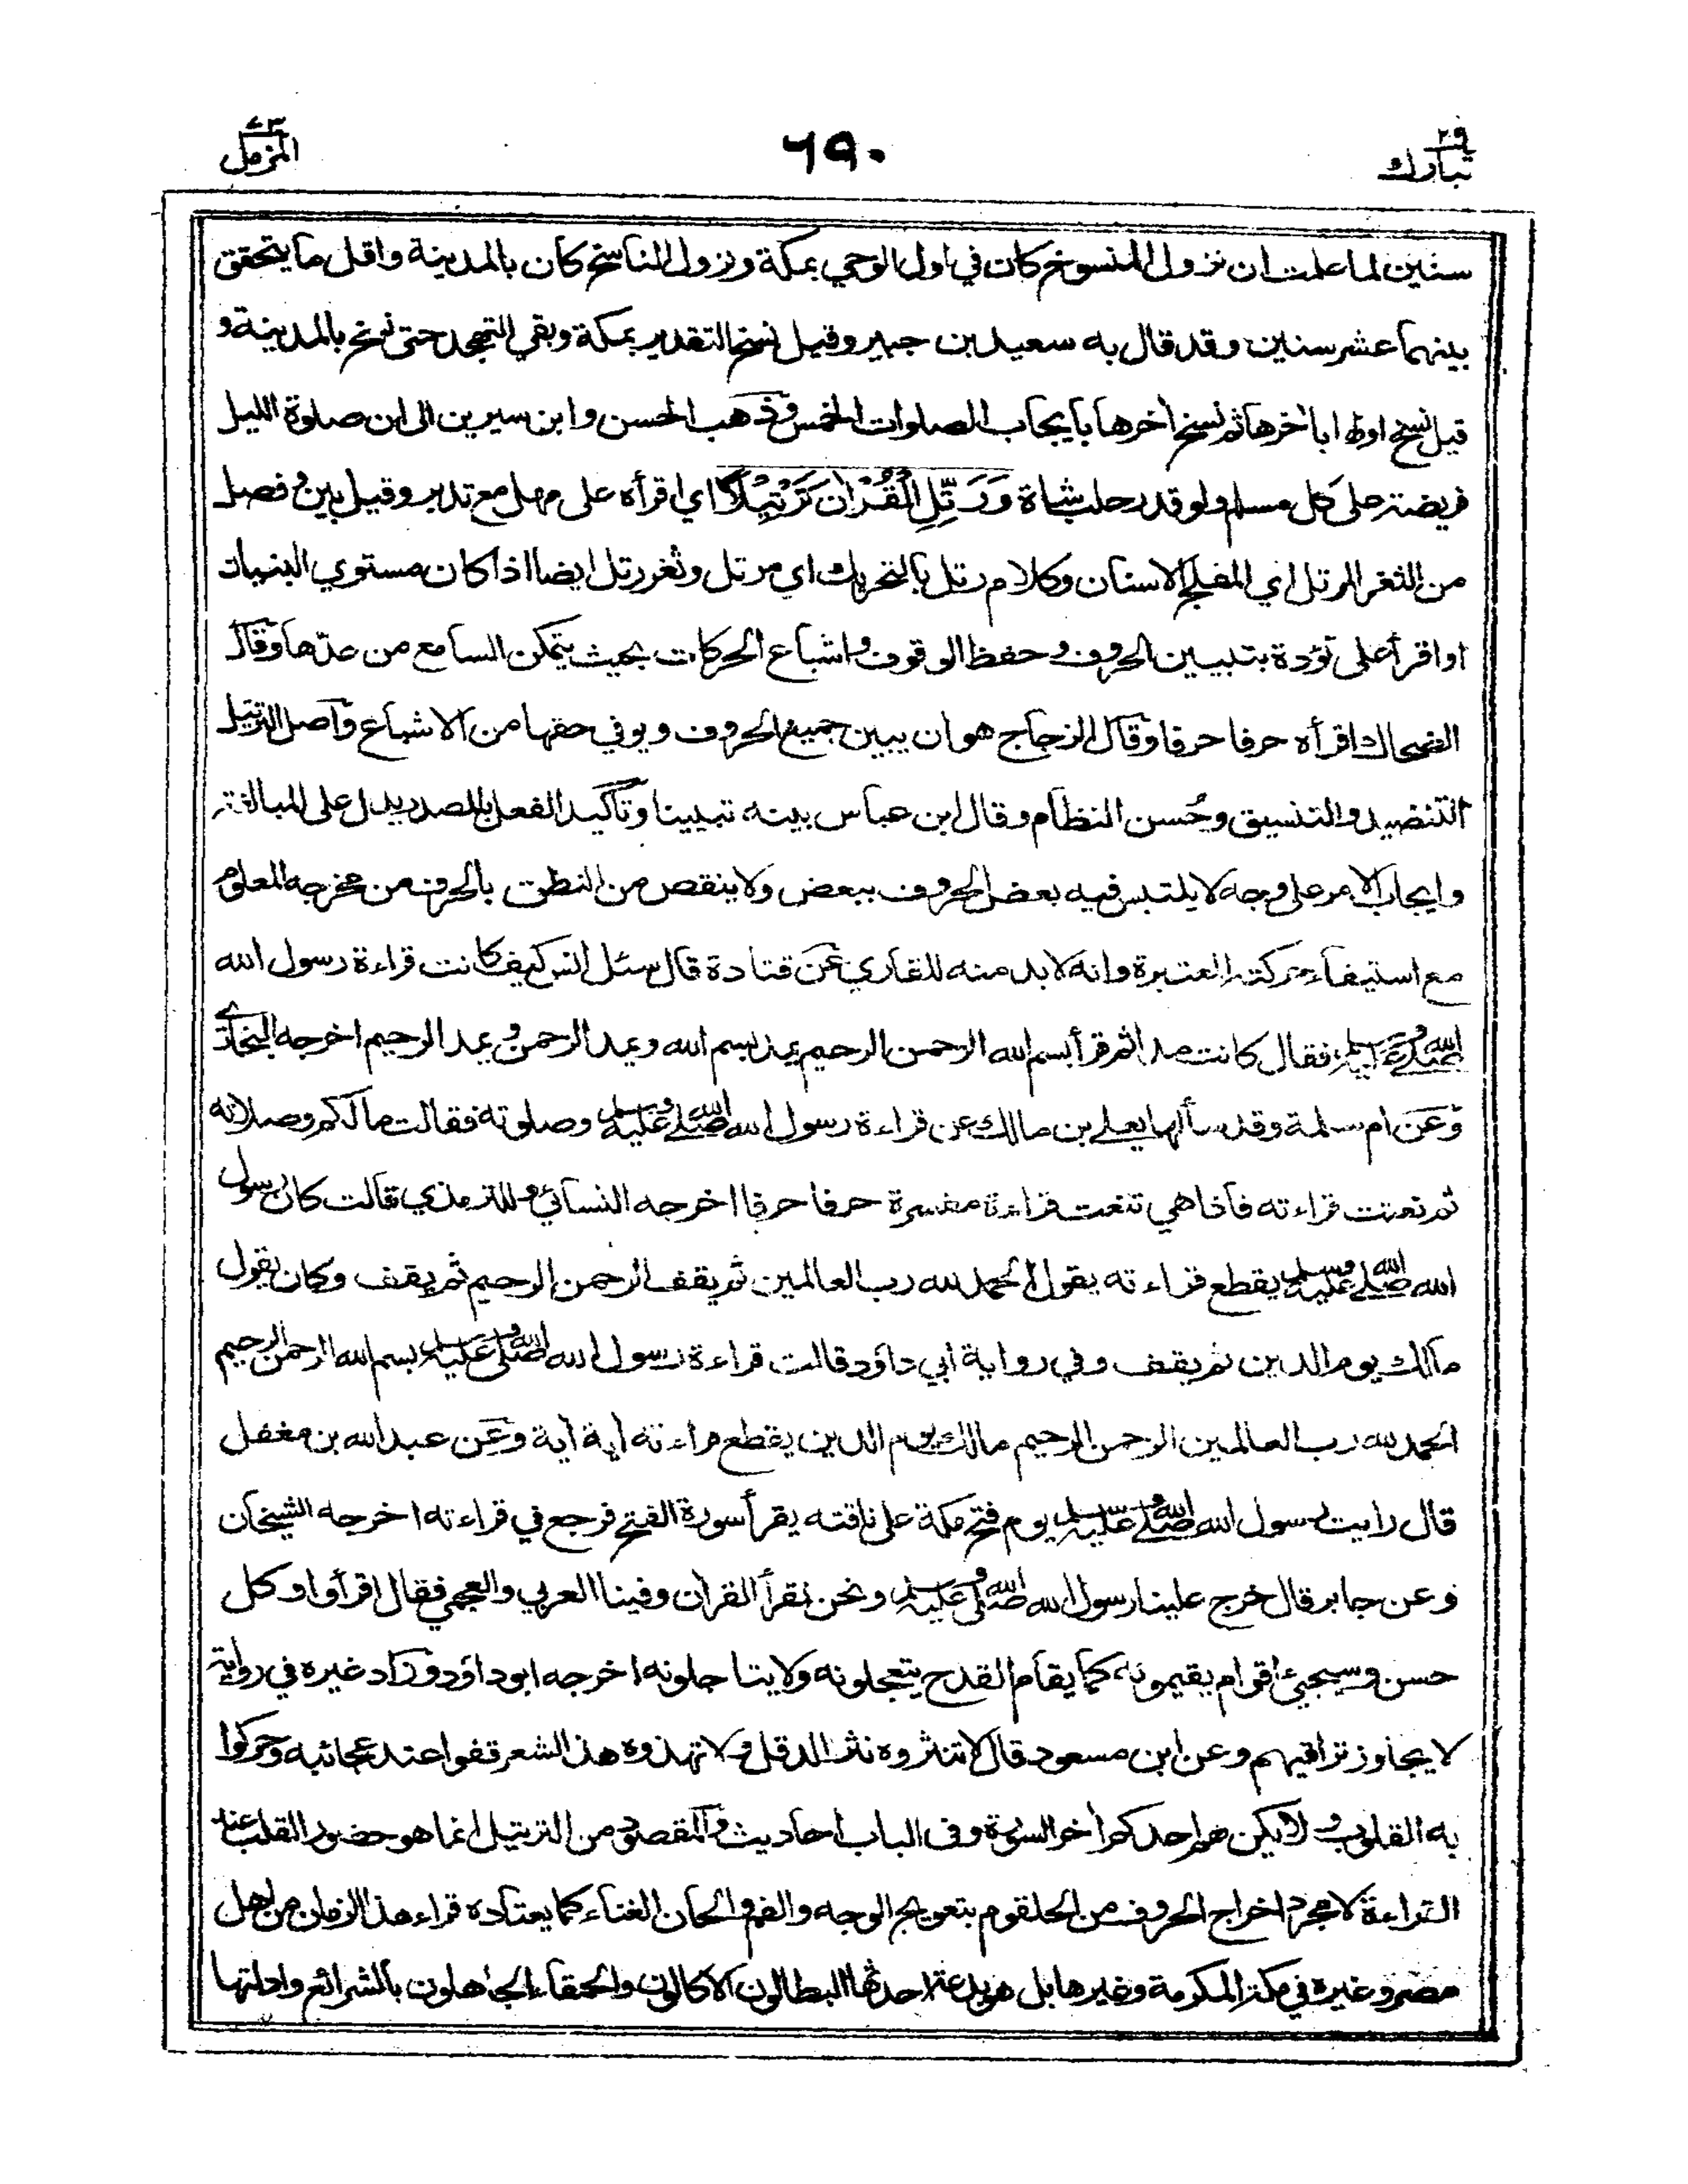 ٢٩
تبارك
٦٩٠
٧٣
المزمل
سنين لما علمت ان نزول المنسوخ كان في اول الوحي بمكة ونزول الناسخ كان بالمدينة واقل ما يتحقق
بينهما عشر سنين وقد قال به سعيد بن جبير وقيل نسخ التقدير بمكة وبقي التهجد حتى نسخ بالمدينة و
قيل نسخ اولها باخرها ثم نسخ اخرها بايجاب الصلوات الخمس وذهب الحسن وابن سيرين الى ان صلوة الليل
فريضة على كل مسلم ولو قدر حلب شاة وَرَتِّلِ الْقُرْاٰنَ تَرْتِيْلًا اي اقرأه على مهل مع تدبر وقيل بين وفصل
من الثغر المرتل اي المفلج الاسنان وكلام رتل بالتحريك اي مرتل وثغر رتل ايضا اذا كان مستوي البنيان
او اقرأ على تؤدة بتبيين الحروف وحفظ الوقوف واشباع الحركات بحيث يتمكن السامع من عدّها وقال
الضحاك اقرأه حرفا حرفا وقال الزجاج هو ان يبين جميع الحروف ويوفي حقها من الاشباع واصل الترتيل
التنضيد والتنسيق وحُسن النظام وقال ابن عباس بينه تبيينا وتأكيد الفعل بالمصدر يدل على المبالغة
وايجاب الامر على وجه لا يلتبس فيه بعض الحروف ببعض ولا ينقص من النطق بالحرف من مخرجه المعلوم
مع استيفاء حركته المعتبرة وانه لا بد منه للقاري عن قتادة قال سئل انس كيف كانت قراءة رسول الله
صلى الله عليه وسلم فقال كانت مدا ثم قرأ بسم الله الرحمن الرحيم يمد بسم الله ويمد الرحمن ويمد الرحيم اخرجه البخاري
وعن ام سلمة وقد سألها يعلى بن مالك عن قراءة رسول الله صلى الله عليه وسلم وصلوته فقالت مالكم وصلاته
ثم نعتت قراءته فاذا هي تنعت قراءة مفسرة حرفا حرفا اخرجه النسائي وللترمذي قالت كان رسول
الله صلى الله عليه وسلم يقطع قراءته يقول الحمد لله رب العالمين ثم يقف الرحمن الرحيم ثم يقف وكان يقول
مالك يوم الدين ثم يقف وفي رواية ابي داؤد قالت قراءة رسول الله صلى الله عليه وسلم بسم الله الرحمن الرحيم
الحمد لله رب العالمين الرحمن الرحيم مالك يوم الدين يقطع قراءته اية اية وعن عبد الله بن مغفل
قال رايت رسول الله صلى الله عليه وسلم يوم فتح مكة على ناقته يقرأ سورة الفتح فرجع في قراءته اخرجه الشيخان
وعن جابر قال خرج علينا رسول الله صلى الله عليه وسلم ونحن نقرأ القران وفينا العربي والعجمي فقال اقرأوا وكل
حسن وسيجيئ اقوام يقيمونه كما يقام القدح يتعجلونه ولا يتاجلونه اخرجه ابو داؤد وزاد غيره في رواية
لا يجاوز تراقيهم وعن ابن مسعود قال لا تنثروه نثر الدقل ولا تهذوه هذ الشعر قفوا عند عجائبه وحركوا
به القلوب ولا يكن هم احدكم اخر السورة وفي الباب احاديث والمقصود من الترتيل انما هو حضور القلب عند
القراءة لا مجرد اخراج الحروف من الحلقوم بتعويج الوجه والفم والحان الغناء كما يعتاده قراء هذا الزمان من اهل
مصر وغيره في مكة المكرمة وغيرها بل هو بدعة احدثها البطالون الاكالون والحمقاء الجاهلون بالشرائع وادلتها